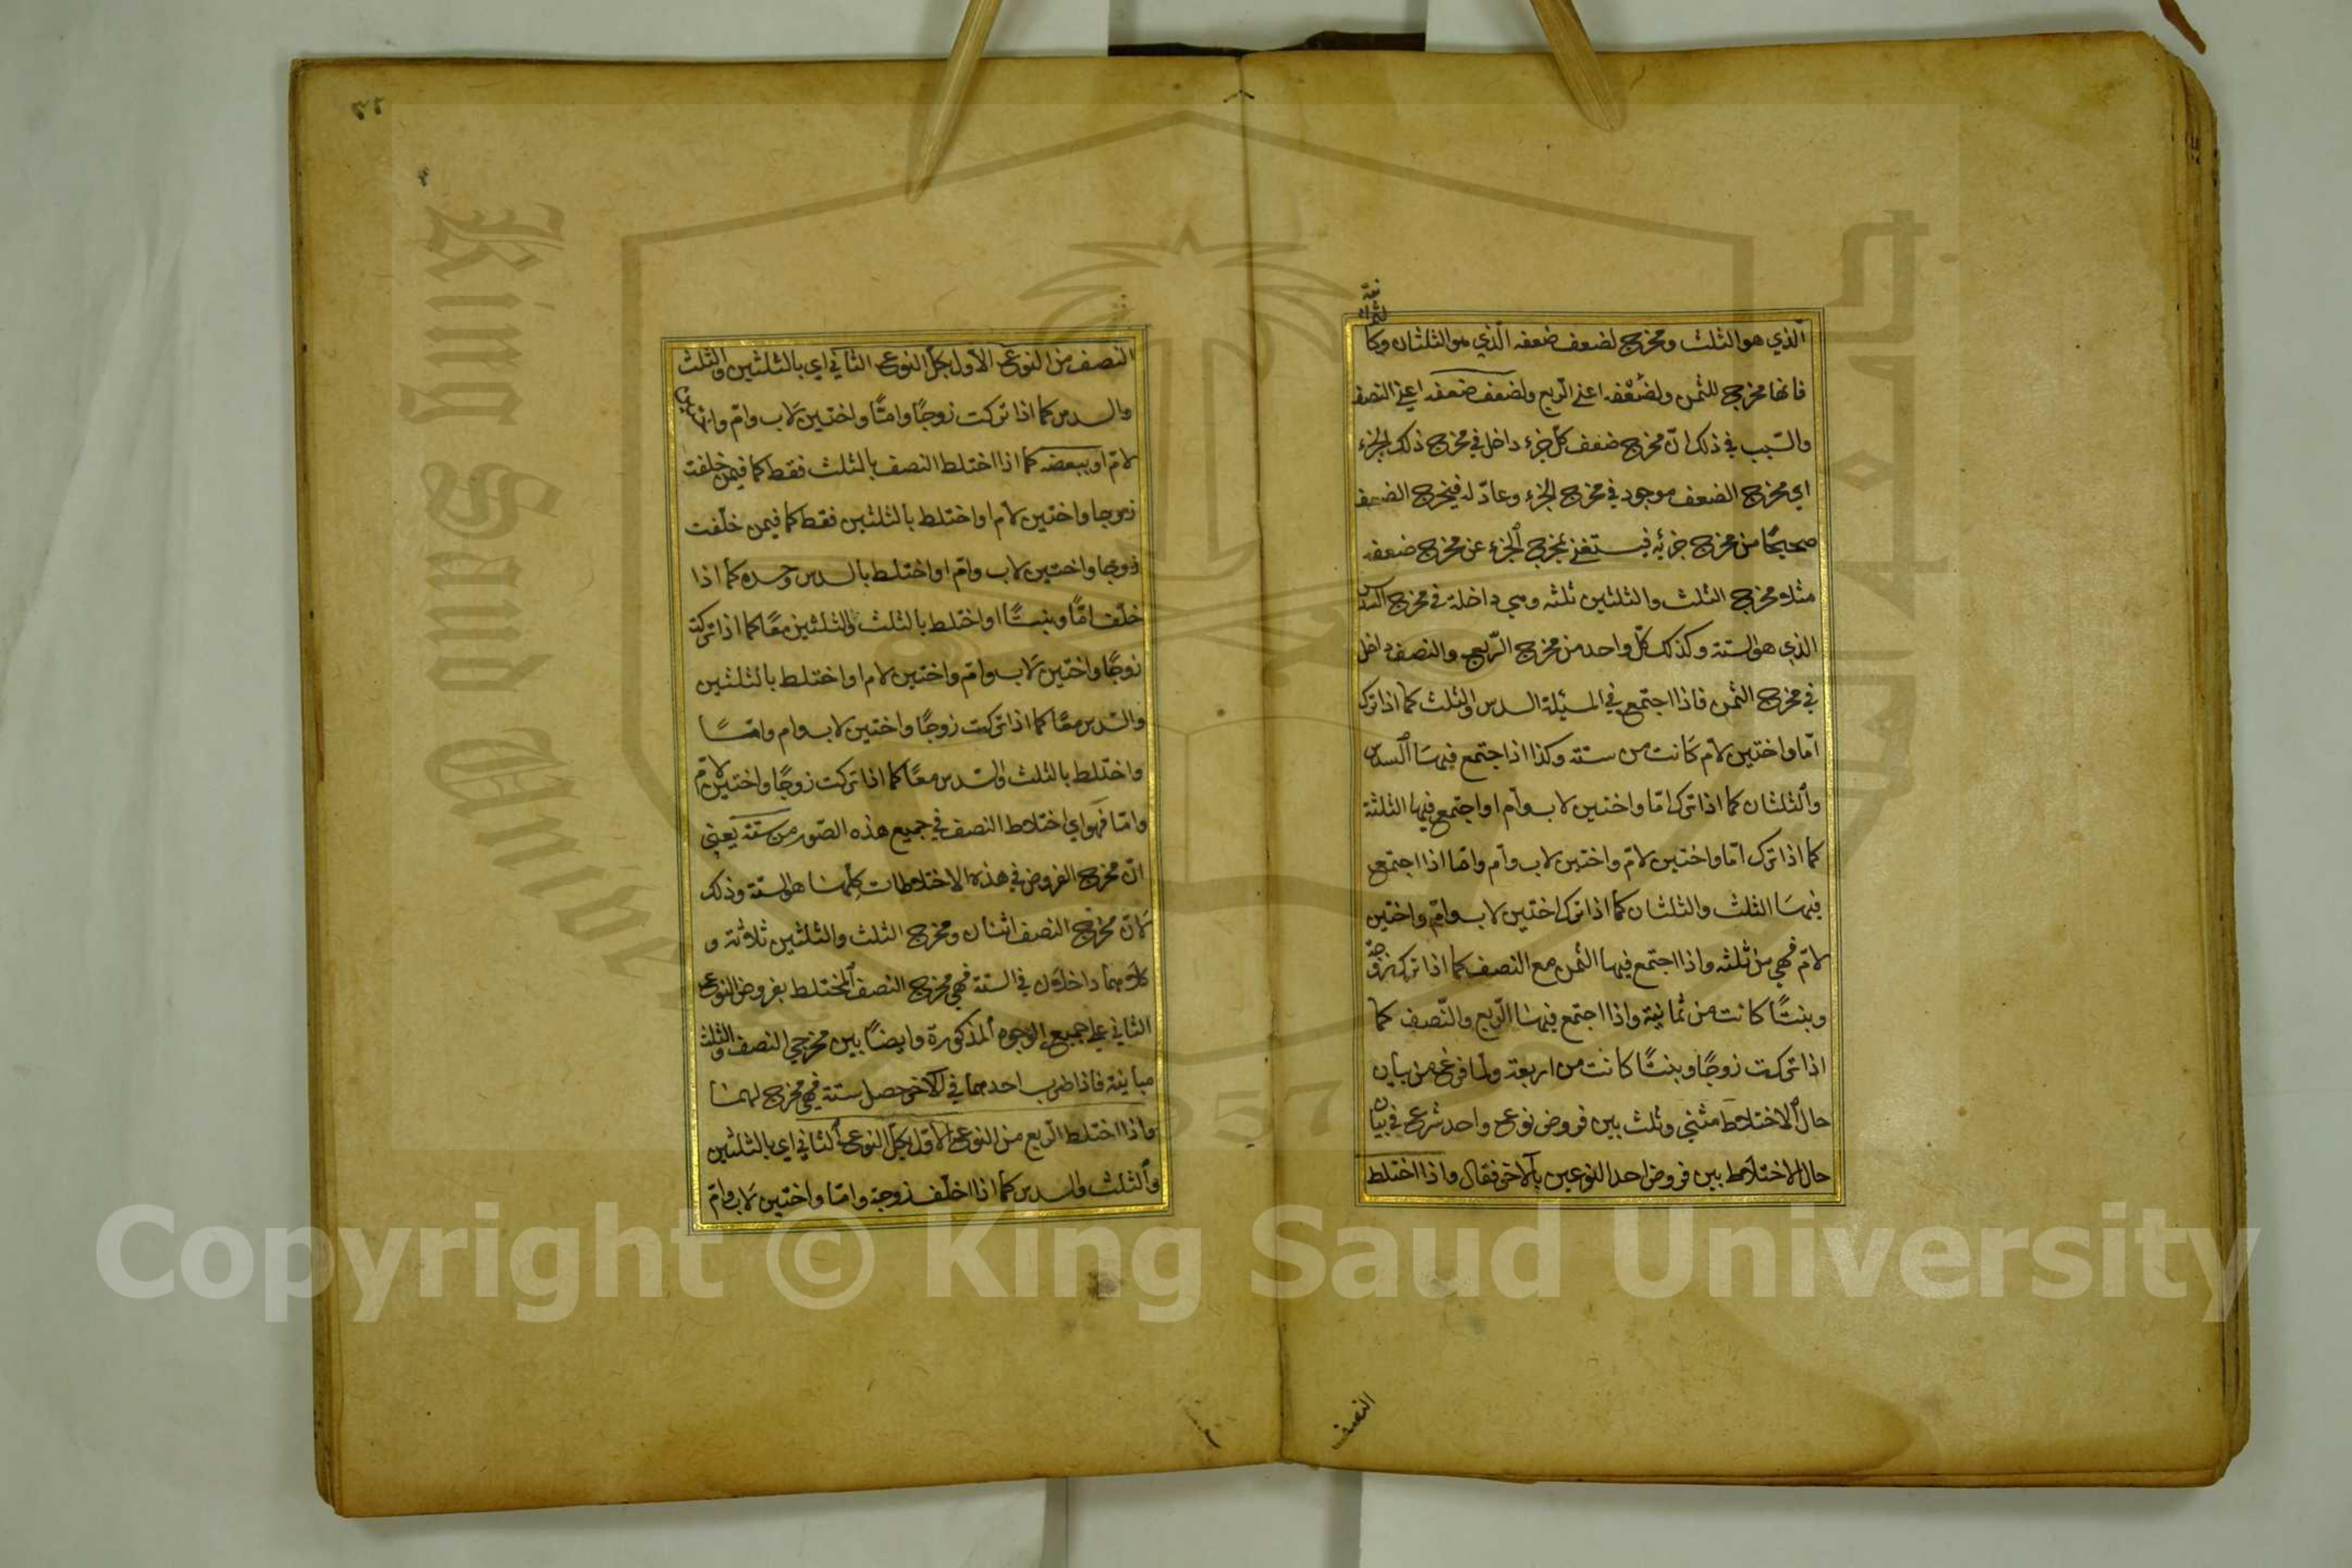 الذي هو الثلث ومخرج لضعف ضعفه الذي هو الثلثان وكا
لثمانية
فانها مخرج للثمن ولضعفه اعني الربع ولضعف ضعفه اعني النصف
والسبب في ذلك ان مخرج ضعف كل جزء داخل في مخرج ذلك الجزء
اي مخرج الضعف موجود في مخرج الجزء وعادّ له فيخرج الضعف
صحيحًا من مخرج جزئه فيستغني بمخرج الجزء عن مخرج ضعفه
مثلا مخرج الثلث والثلثين ثلثة وهي داخلة في مخرج السدس
الذي هو الستة وكذلك كل واحد من مخرج الربع والنصف داخل
في مخرج الثمن فاذا اجتمع في المسئلة السدس والثلث كما اذا ترك
امّا واختين لام كانت من ستة وكذا اذا اجتمع فيها السدس
والثلثان كما اذا ترك امّا واختين لاب وام او اجتمع فيها الثلثة
كما اذا ترك امّا واختين لامّ واختين لاب وام وامّا اذا اجتمع
فيها الثلث والثلثان كما اذا ترك اختين لاب وامّ واختين
لامّ فهي من ثلثة واذا اجتمع فيها الثمن مع النصف كما اذا ترك زوجة
وبنتًا كانت من ثمانية واذا اجتمع فيها الربع والنّصف كما
اذا تركت زوجًا وبنتًا كانت من اربعة ولما فرغ من بيان
حال الاختلاط مثنى وثلث بين فروض نوع واحد شرع في بيان
حال الاختلاط بين فروض احد النوعين بالآخر فقال واذا اختلط
النصف
النصف من النوع الاول بكل النوع الثاني اي بالثلثين والثلث
والسدس كما اذا تركت زوجًا وامًّا واختين لاب وامّ واختين
لامّ او ببعضه كما اذا اختلط النصف بالثلث فقط كما فيمن خلفت
زوجا واختين لام او اختلط بالثلثين فقط كما فيمن خلّفت
زوجا واختين لاب وامّ او اختلط بالسدس وحده كما اذا
خلّف امّا وبنتًا او اختلط بالثلث والثلثين معًا كما اذا تركت
زوجًا واختين لاب وامّ واختين لام او اختلط بالثلثين
والسدس معًا كما اذا تركت زوجًا واختين لاب وام وامّا
واختلط بالثلث والسّدس معًا كما اذا تركت زوجًا واختين لامّ
وامّا فهو اي اختلاط النصف في جميع هذه الصّور من ستة يعني
انّ مخرج الفروض في هذه الاختلاطات كلّها هو الستة وذلك
لانّ مخرج النصف اثنان ومخرج الثلث والثلثين ثلاثة و
كلاهما داخلان في الستة فهي مخرج النصف المختلط بفروض النوع
الثاني على جميع الوجوه المذكورة وايضًا بين مخرجي النصف والثلث
مباينة فاذا ضرب احدهما في الآخر حصل ستة فهي مخرج لهما
واذا اختلط الربع من النوع الاوّل بكل النوع الثاني اي بالثلثين
والثلث والسدس كما اذا اخلّف زوجة وامّا واختين لاب وامّ
Copyright © King Saud University
King Saud University
1957